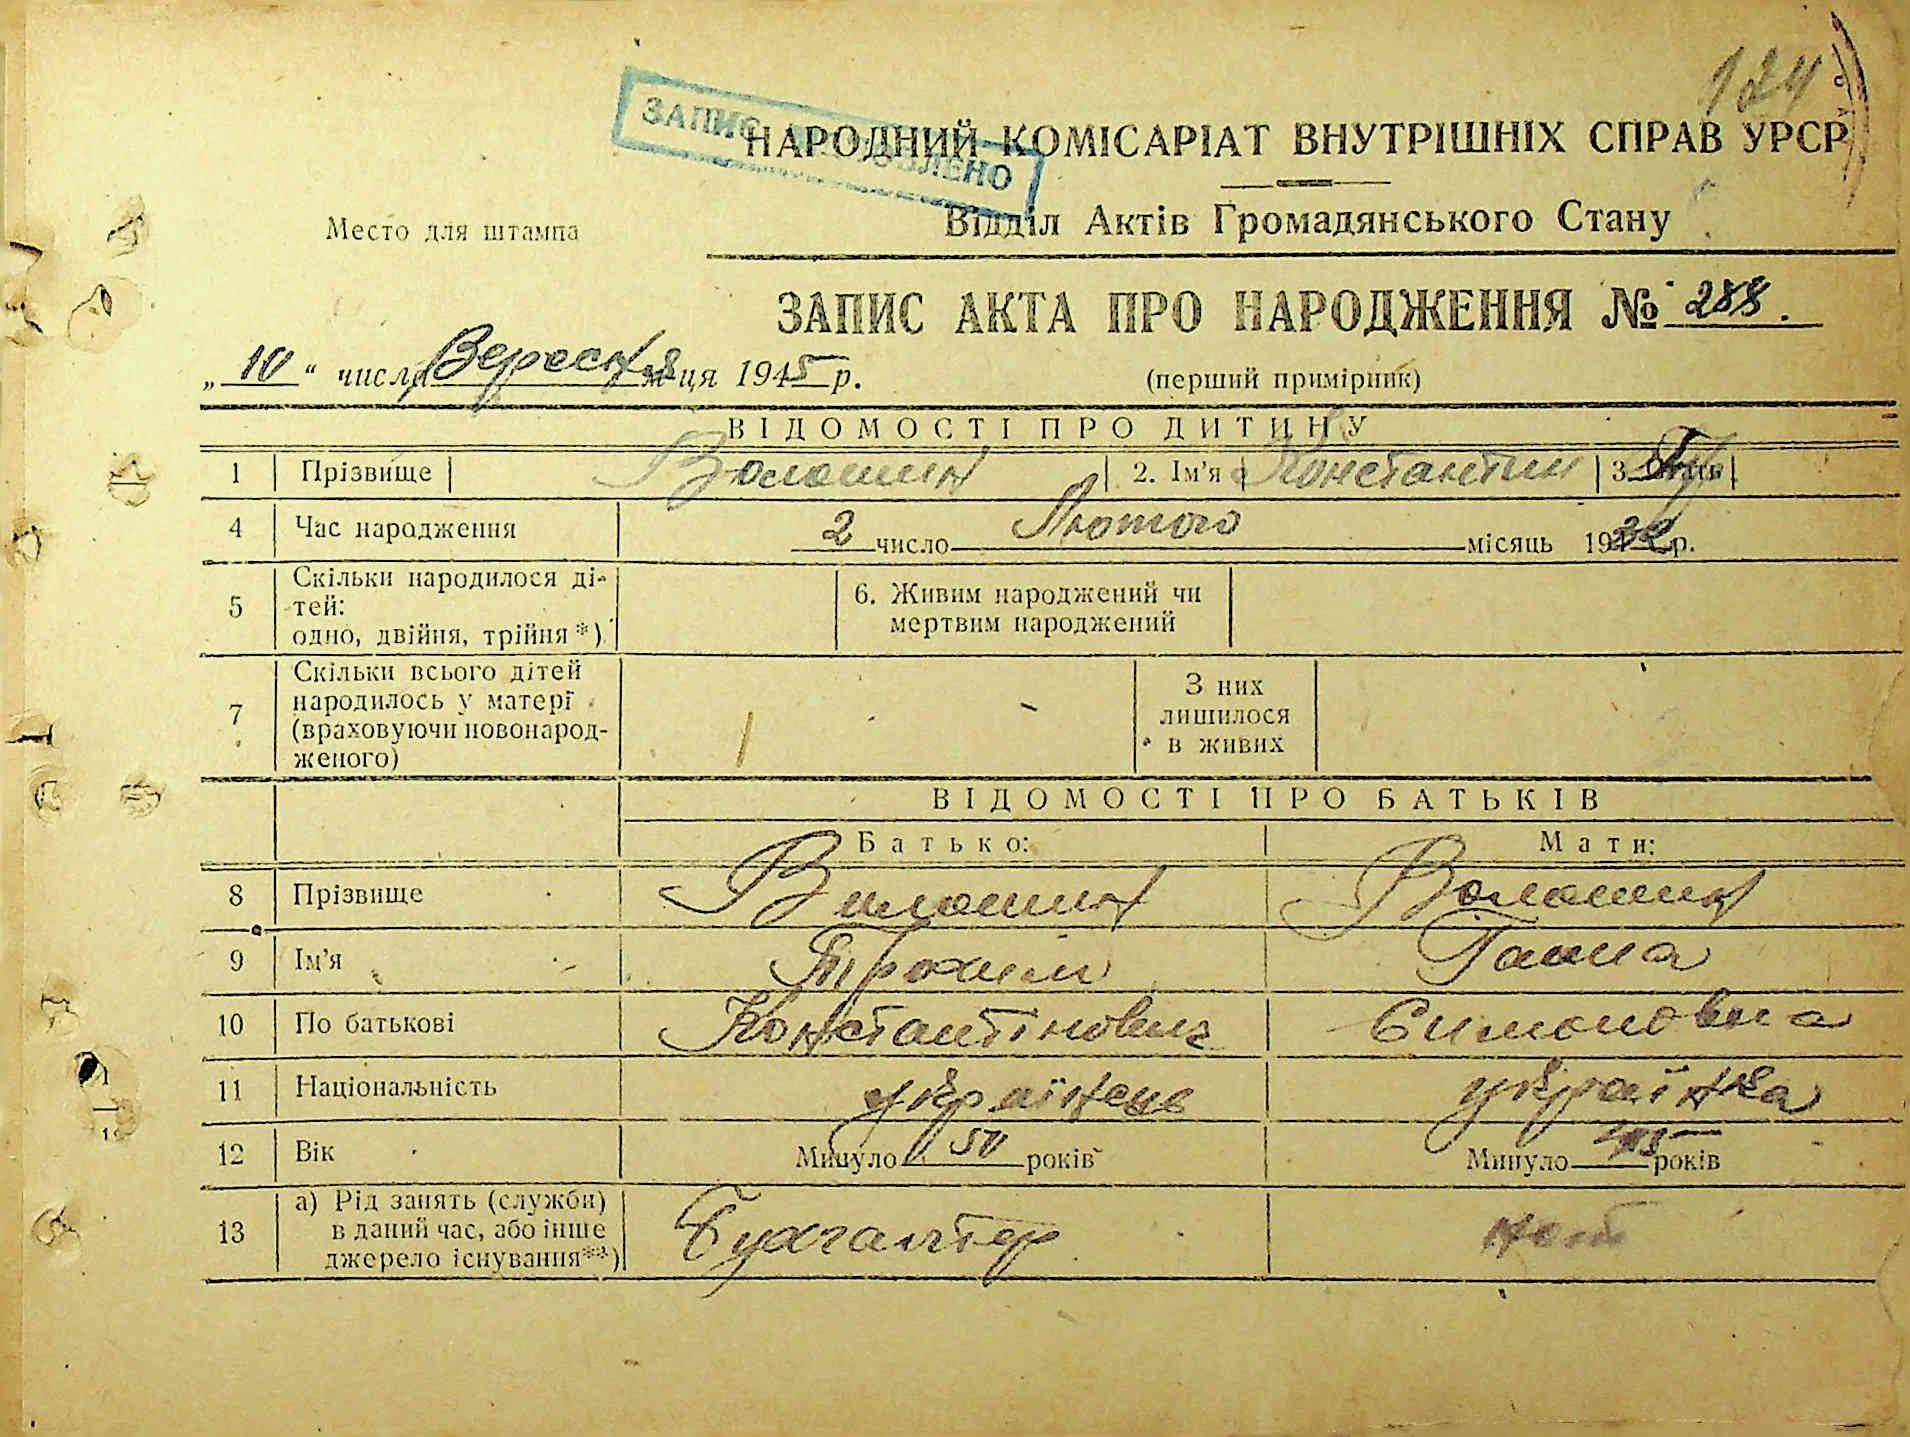 124
ЗАПИС ПОНОВЛЕНО
НАРОДНИЙ КОМІСАРІАТ ВНУТРІШНІХ СПРАВ УРСР
Место для штампа
Відділ Актів Громадянського Стану
ЗАПИС АКТА ПРО НАРОДЖЕННЯ № 288.
„10“ числа Вересня м-ця 1945 р.
(перший примірник)
ВІДОМОСТІ ПРО ДИТИНУ
1 Прізвище Волошин 2. Ім'я Константин 3.
4 Час народження 2 число Лютого місяць 1932 р.
5 Скільки народилося ді-
тей:
одно, двійня, трійня*)
6. Живим народжений чи
мертвим народжений
7 Скільки всього дітей
народилось у матері
(враховуючи новонарод-
женого)
З них
лишилося
в живих
ВІДОМОСТІ ПРО БАТЬКІВ
Батько: Мати:
8 Прізвище Волошин Волошин
9 Ім'я Трохим Ганна
10 По батькові Константінович Симоновна
11 Національність українець українка
12 Вік Минуло 50 років Минуло 45 років
13 а) Рід занять (служби)
в даний час, або інше
джерело існування**)
Бухгалтер нет